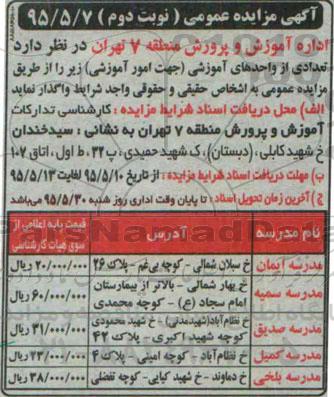 آگهی مزایده عمومی ( نوبت دوم ) ۹۵/۵/۷
اداره آموزش و پرورش منطقه ۷ تهران در نظر دارد
تعدادی از واحدهای آموزشی (جهت امور آموزشی) زیر را از طریق
مزایده عمومی به اشخاص حقیقی و حقوقی واجد شرایط واگذار نماید
الف) محل دریافت اسناد شرایط مزایده : کارشناسی تدارکات
آموزش و پرورش منطقه ۷ تهران به نشانی : سیدخندان
خ شهید کابلی ، (دبستان)، ک شهید حمیدی ، پ ۳۲، ط اول ، اتاق ۱۰۲
ب) مهلت دریافت اسناد شرایط مزایده : از تاریخ ۹۵/۵/۱۰ لغایت ۹۵/۵/۱۳
ج) آخرین زمان تحویل اسناد : تا پایان وقت اداری روز شنبه ۹۵/۵/۳۰ میباشد
نام مدرسه آدرس قیمت پایه اعلامی از سوی هیات کارشناسی
مدرسه ایمان خ سبلان شمالی - کوچه بی‌غم - پلاک ۲۶ ۲۰/۰۰۰/۰۰۰ ریال
مدرسه سمیه خ بهار شمالی - بالاتر از بیمارستان امام سجاد (ع) - کوچه محمدی ۶۰/۰۰۰/۰۰۰ ریال
مدرسه صدیق خ نظام‌آباد (شهیدمدنی) - خ شهید محمودی کوچه شهید اکبری - پلاک ۴۲ ۳۱/۰۰۰/۰۰۰ ریال
مدرسه کمیل خ نظام‌آباد - کوچه امینی - پلاک ۴ ۲۳/۰۰۰/۰۰۰ ریال
مدرسه بلخی خ دماوند - خ شهید کیایی - کوچه تفضلی ۳۸/۰۰۰/۰۰۰ ریال